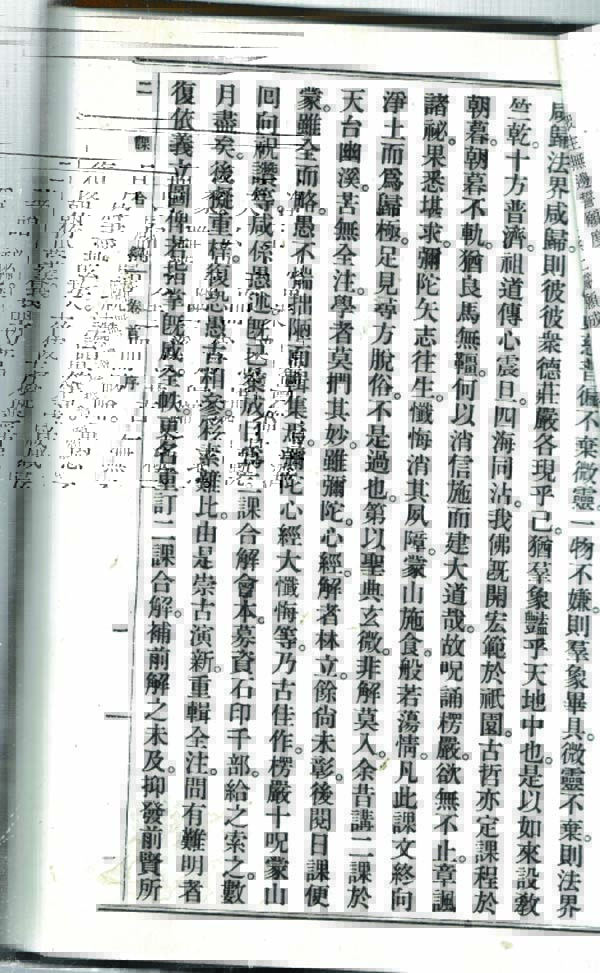 不棄微靈。一物不嫌。則羣象畢具。微靈不棄。則法界
咸歸法界。咸歸。則彼彼衆德莊嚴。各現乎己。猶羣象豔乎天地中也。是以如來設敎
竺乾。十方普濟。祖道傳心。震旦。四海同沾。我佛旣開宏範於祇園。古哲亦定課程於
朝暮。朝暮不軌。猶良馬無韁。何以消信施而建大道哉。故呪誦楞嚴。欲無不止。章諷
諸祕。果悉堪求。彌陀矢志往生。懺悔消其夙障。蒙山施食。般若蕩情。凡此課文。終向
淨土而爲歸極。足見尋方脫俗。不是過也。第以聖典玄微。非解莫入。余昔講二課於
天台幽溪。苦無全注。學者莫捫其妙。雖彌陀心經。解者林立。餘尙未彰。後閱日課便
蒙。雖全而略。愚不惴拙陋。而輯集焉。彌陀心經大懺悔等。乃古佳作。楞嚴十呪蒙山
回向祝讚等。咸係愚述。旣成目爲二課合解會本。募資石印千部。給之索之。數
月盡矣。後擬重復恐愚言相參。難比。由是崇古演新。重輯全注。間有難明者
復依義立圖。俾若指掌。旣成全帙。更名重訂二課合解。補前解之未及。抑發前賢所
二課合解 卷首 序 二